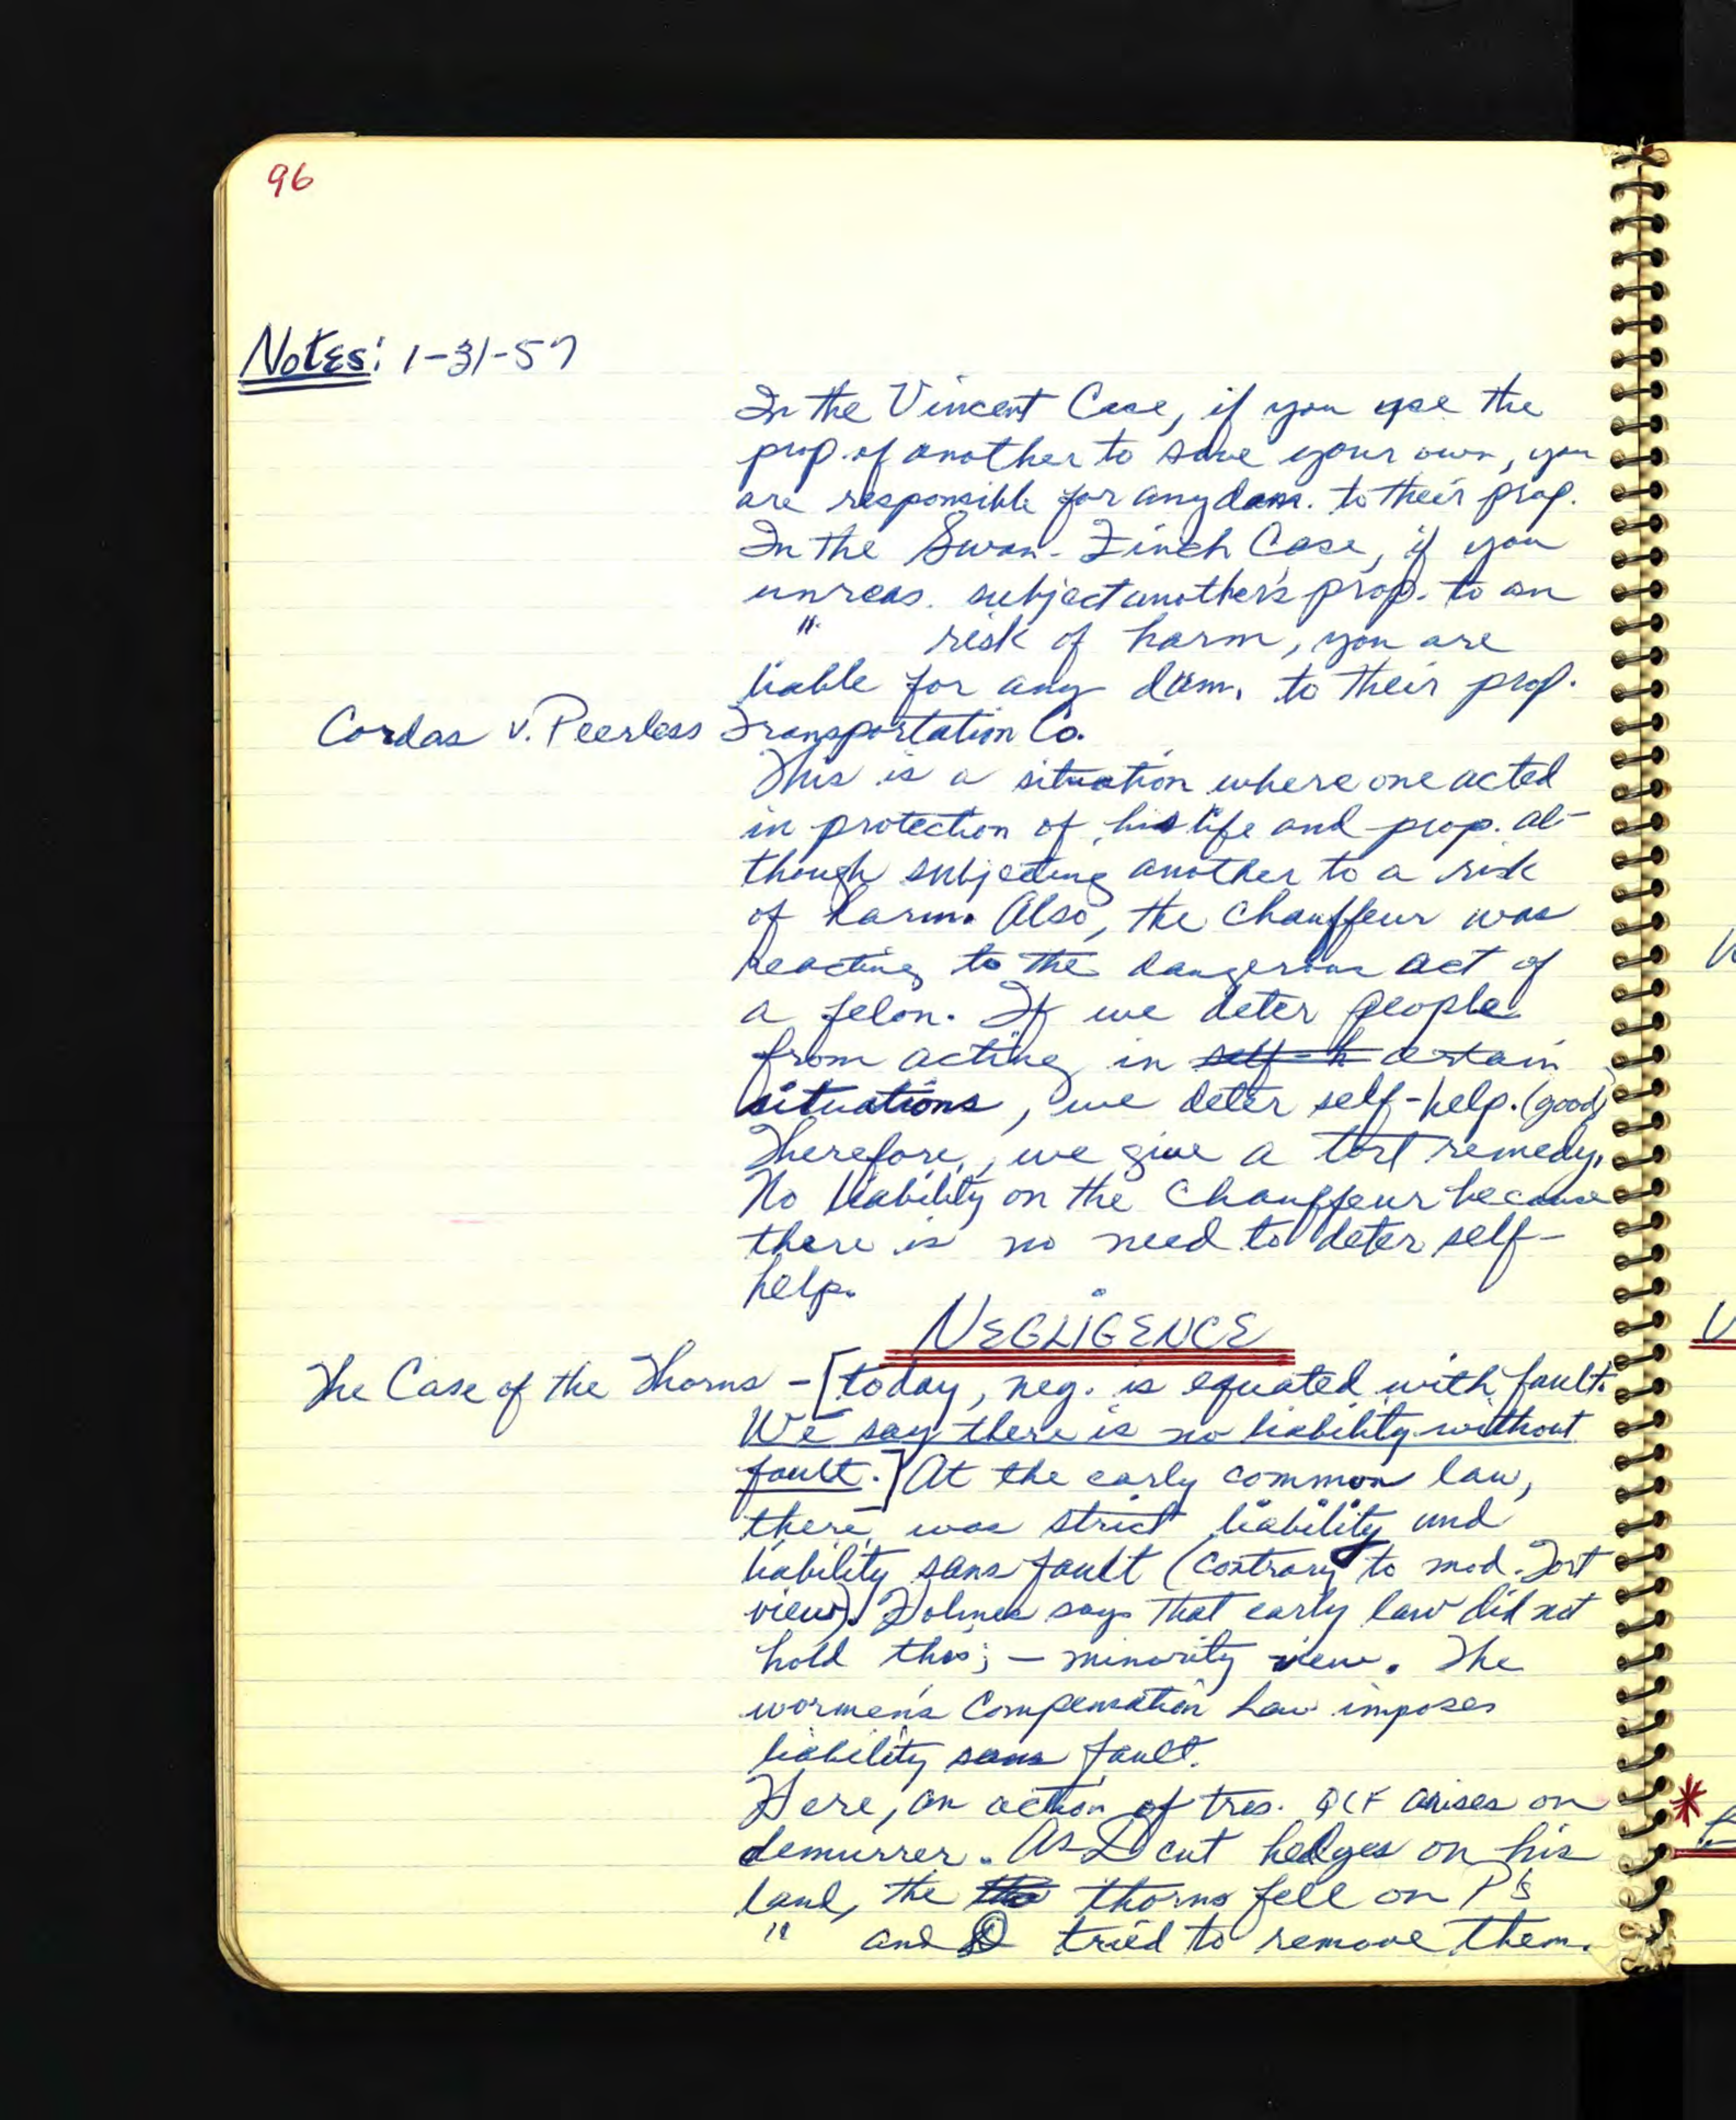 96
Notes: 1-31-57
In the Vincent Case, if you use the
prop. of another to save your own, you
are responsible for any dam. to their prop.
In the Swan-Finch Case, if you
unreas. subject another's prop. to an
" risk of harm, you are
liable for any dam. to their prop.
Cordas v. Peerless Transportation Co.
This is a situation where one acted
in protection of his life and prop. al-
though subjecting another to a risk
of harm. Also, the chauffeur was
reacting to the dangerous act of
a felon. If we deter people
from acting in self-h certain
situations, we deter self-help. (good)
Therefore, we give a tort remedy.
No liability on the chauffeur because
there is no need to deter self-
help.
NEGLIGENCE
The Case of the Thorns - [today, neg. is equated with fault.
We say there is no liability without
fault.] At the early common law,
there was strict liability and
liability sans fault (contrary to mod. Tort
view). Holmes says that early law did not
hold this; - minority view. The
wormen's Compensation Law imposes
liability sans fault.
Here, an action of tres. QCF arises on
demurrer. As D cut hedges on his
land, the the thorns fell on P's
" and D tried to remove them.